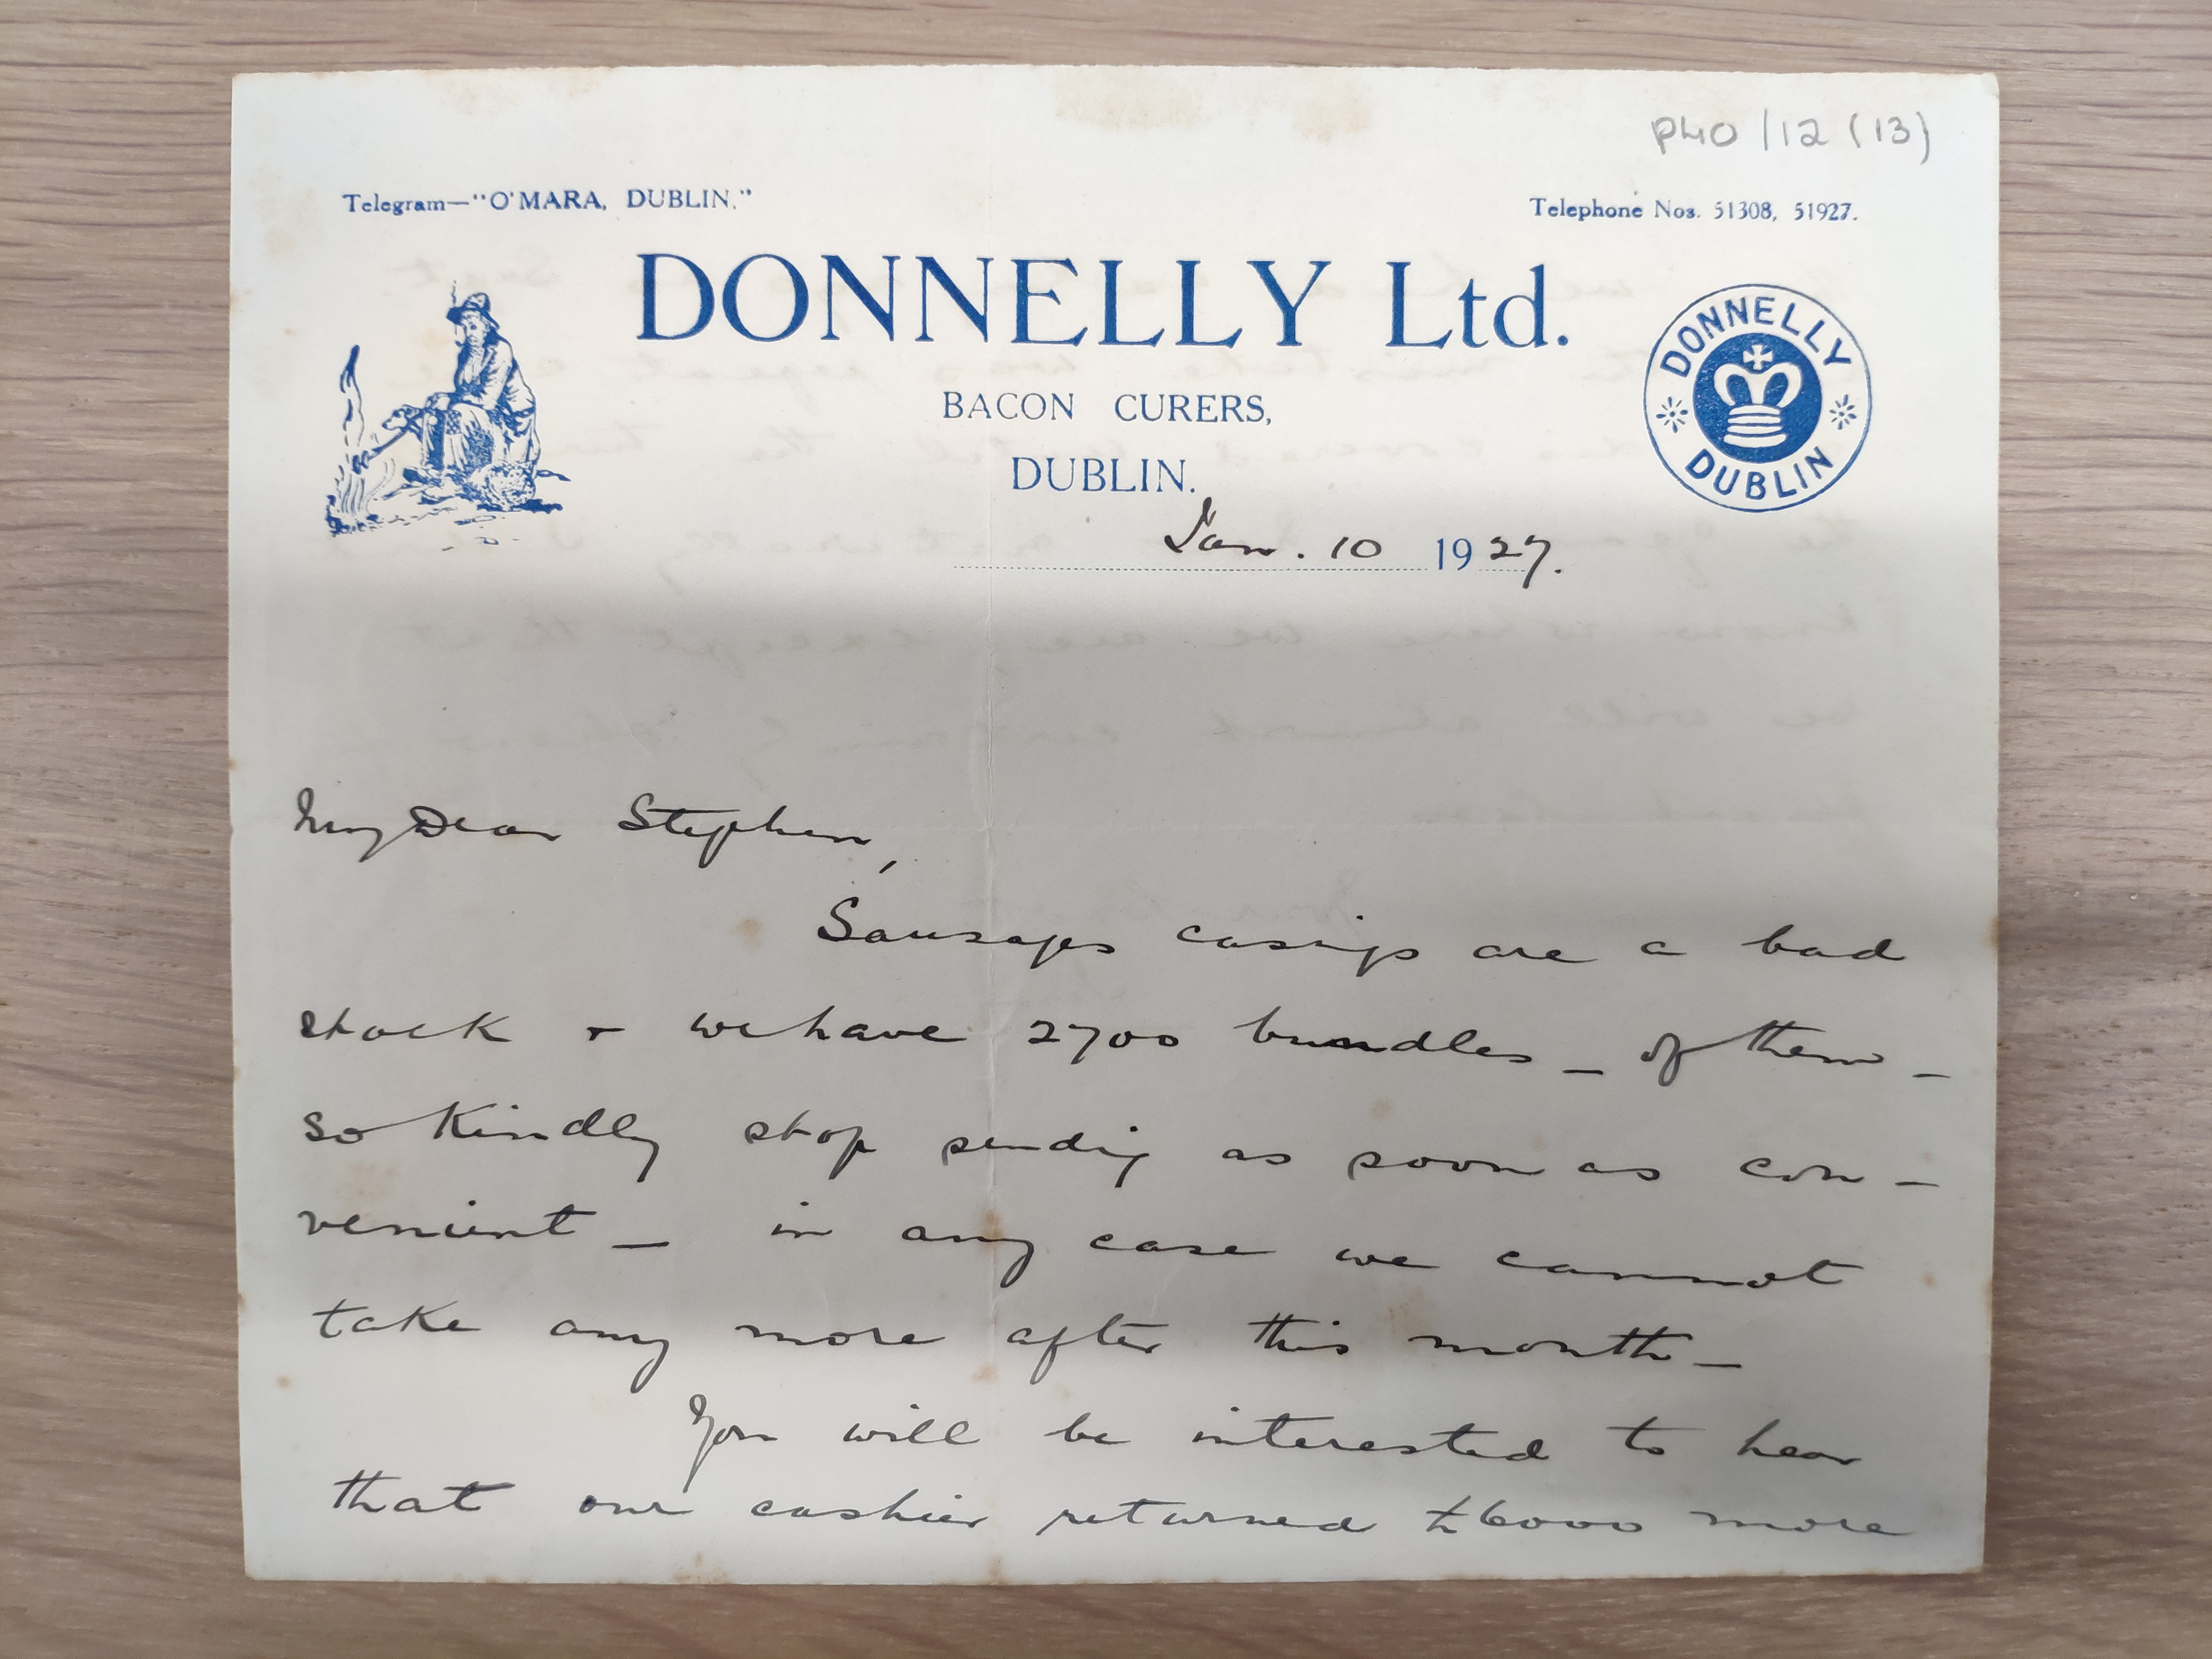 P40/12(13)
Telegram—"O'MARA, DUBLIN."
Telephone Nos. 51308, 51927.
DONNELLY Ltd.
DONNELLY
DUBLIN
BACON CURERS,
DUBLIN.
Jan. 10 1927.
My Dear Stephen,
Sausages casings are a bad
stock + we have 2700 bundles – of them –
so kindly stop sending as soon as con-
venient – in any case we cannot
take any more after this month –
You will be interested to hear
that our cashier returned £6000 more